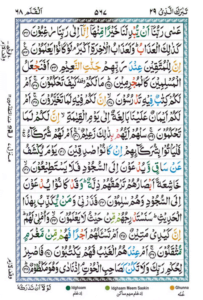 تَبٰرَكَ الَّذِىْ ٢٩ ٥٦٧ اَلْقَلَم ٦٨
عَسٰى رَبُّنَآ اَنْ يُّبْدِلَنَا خَيْرًا مِّنْهَآ اِنَّآ اِلٰى رَبِّنَا رٰغِبُوْنَ
كَذٰلِكَ الْعَذَابُ ؕ وَلَعَذَابُ الْاٰخِرَةِ اَكْبَرُ ۘ لَوْ كَانُوْا يَعْلَمُوْنَ
اِنَّ لِلْمُتَّقِيْنَ عِنْدَ رَبِّهِمْ جَنّٰتِ النَّعِيْمِ اَفَنَجْعَلُ
الْمُسْلِمِيْنَ كَالْمُجْرِمِيْنَ مَا لَكُمْ كَيْفَ تَحْكُمُوْنَ اَمْ
لَكُمْ كِتٰبٌ فِيْهِ تَدْرُسُوْنَ اِنَّ لَكُمْ فِيْهِ لَمَا تَخَيَّرُوْنَ اَمْ
لَكُمْ اَيْمَانٌ عَلَيْنَا بَالِغَةٌ اِلٰى يَوْمِ الْقِيٰمَةِ اِنَّ لَكُمْ لَمَا
تَحْكُمُوْنَ سَلْهُمْ اَيُّهُمْ بِذٰلِكَ زَعِيْمٌ اَمْ لَهُمْ شُرَكَآءُ
فَلْيَاْتُوْا بِشُرَكَآئِهِمْ اِنْ كَانُوْا صٰدِقِيْنَ يَوْمَ يُكْشَفُ
عَنْ سَاقٍ وَّيُدْعَوْنَ اِلَى السُّجُوْدِ فَلَا يَسْتَطِيْعُوْنَ
خَاشِعَةً اَبْصَارُهُمْ تَرْهَقُهُمْ ذِلَّةٌ وَقَدْ كَانُوْا يُدْعَوْنَ
اِلَى السُّجُوْدِ وَهُمْ سٰلِمُوْنَ فَذَرْنِىْ وَمَنْ يُّكَذِّبُ بِهٰذَا
الْحَدِيْثِ سَنَسْتَدْرِجُهُمْ مِّنْ حَيْثُ لَا يَعْلَمُوْنَ وَاُمْلِىْ
لَهُمْ اِنَّ كَيْدِىْ مَتِيْنٌ اَمْ تَسْـَٔلُهُمْ اَجْرًا فَهُمْ مِّنْ مَّغْرَمٍ
مُّثْقَلُوْنَ اَمْ عِنْدَهُمُ الْغَيْبُ فَهُمْ يَكْتُبُوْنَ فَاصْبِرْ
لِحُكْمِ رَبِّكَ وَلَا تَكُنْ كَصَاحِبِ الْحُوْتِ اِذْ نَادٰى وَهُوَ مَكْظُوْمٌ
Idgham Idgham Meem Saakin Ghunna